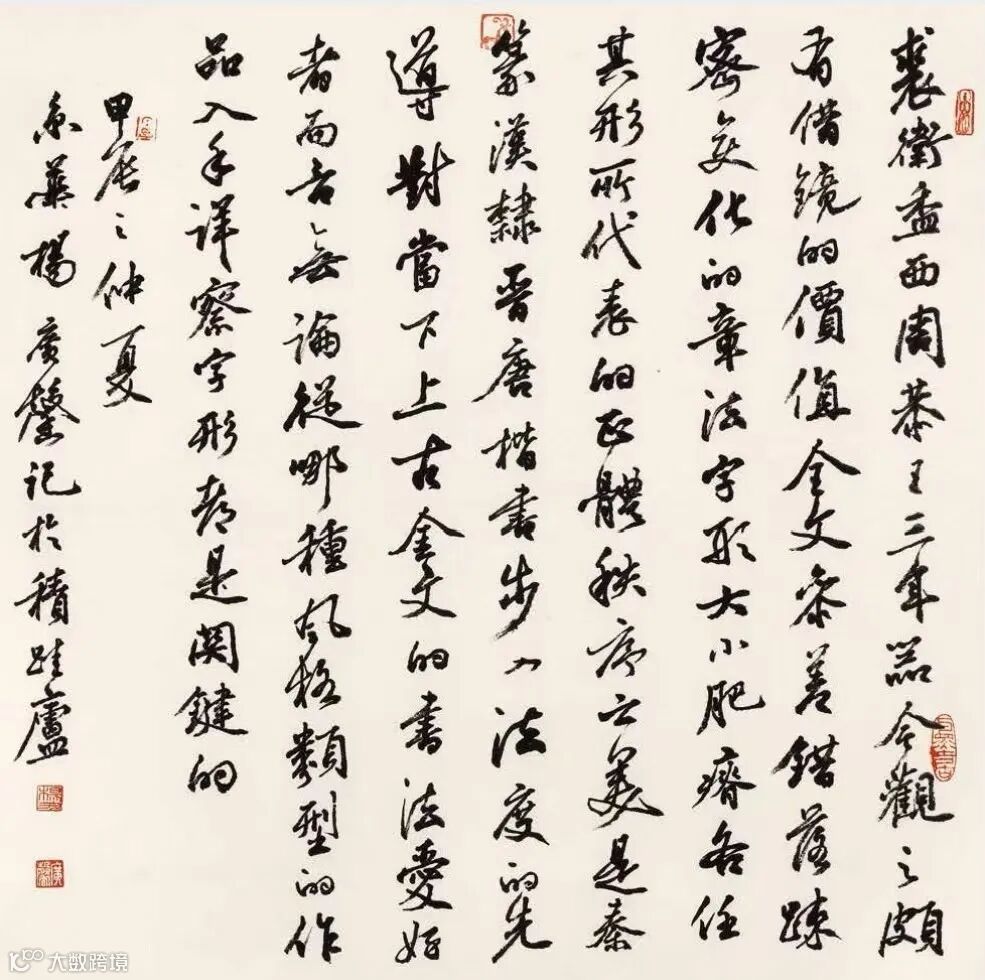 裘衛盉西周恭王三年器今觀之頗
有借鏡的價值金文參差錯落疎
密变化的章法字形大小肥瘠各任
其形所代表的正體秩序之美是秦
篆漢隸晉唐楷書步入法度的先
導對當下上古金文的書法愛好
者而言無論從哪種風格類型的作
品入手詳察字形都是關鍵的
甲辰之仲夏
京華楊廣馨記於積跬廬
大数跨境